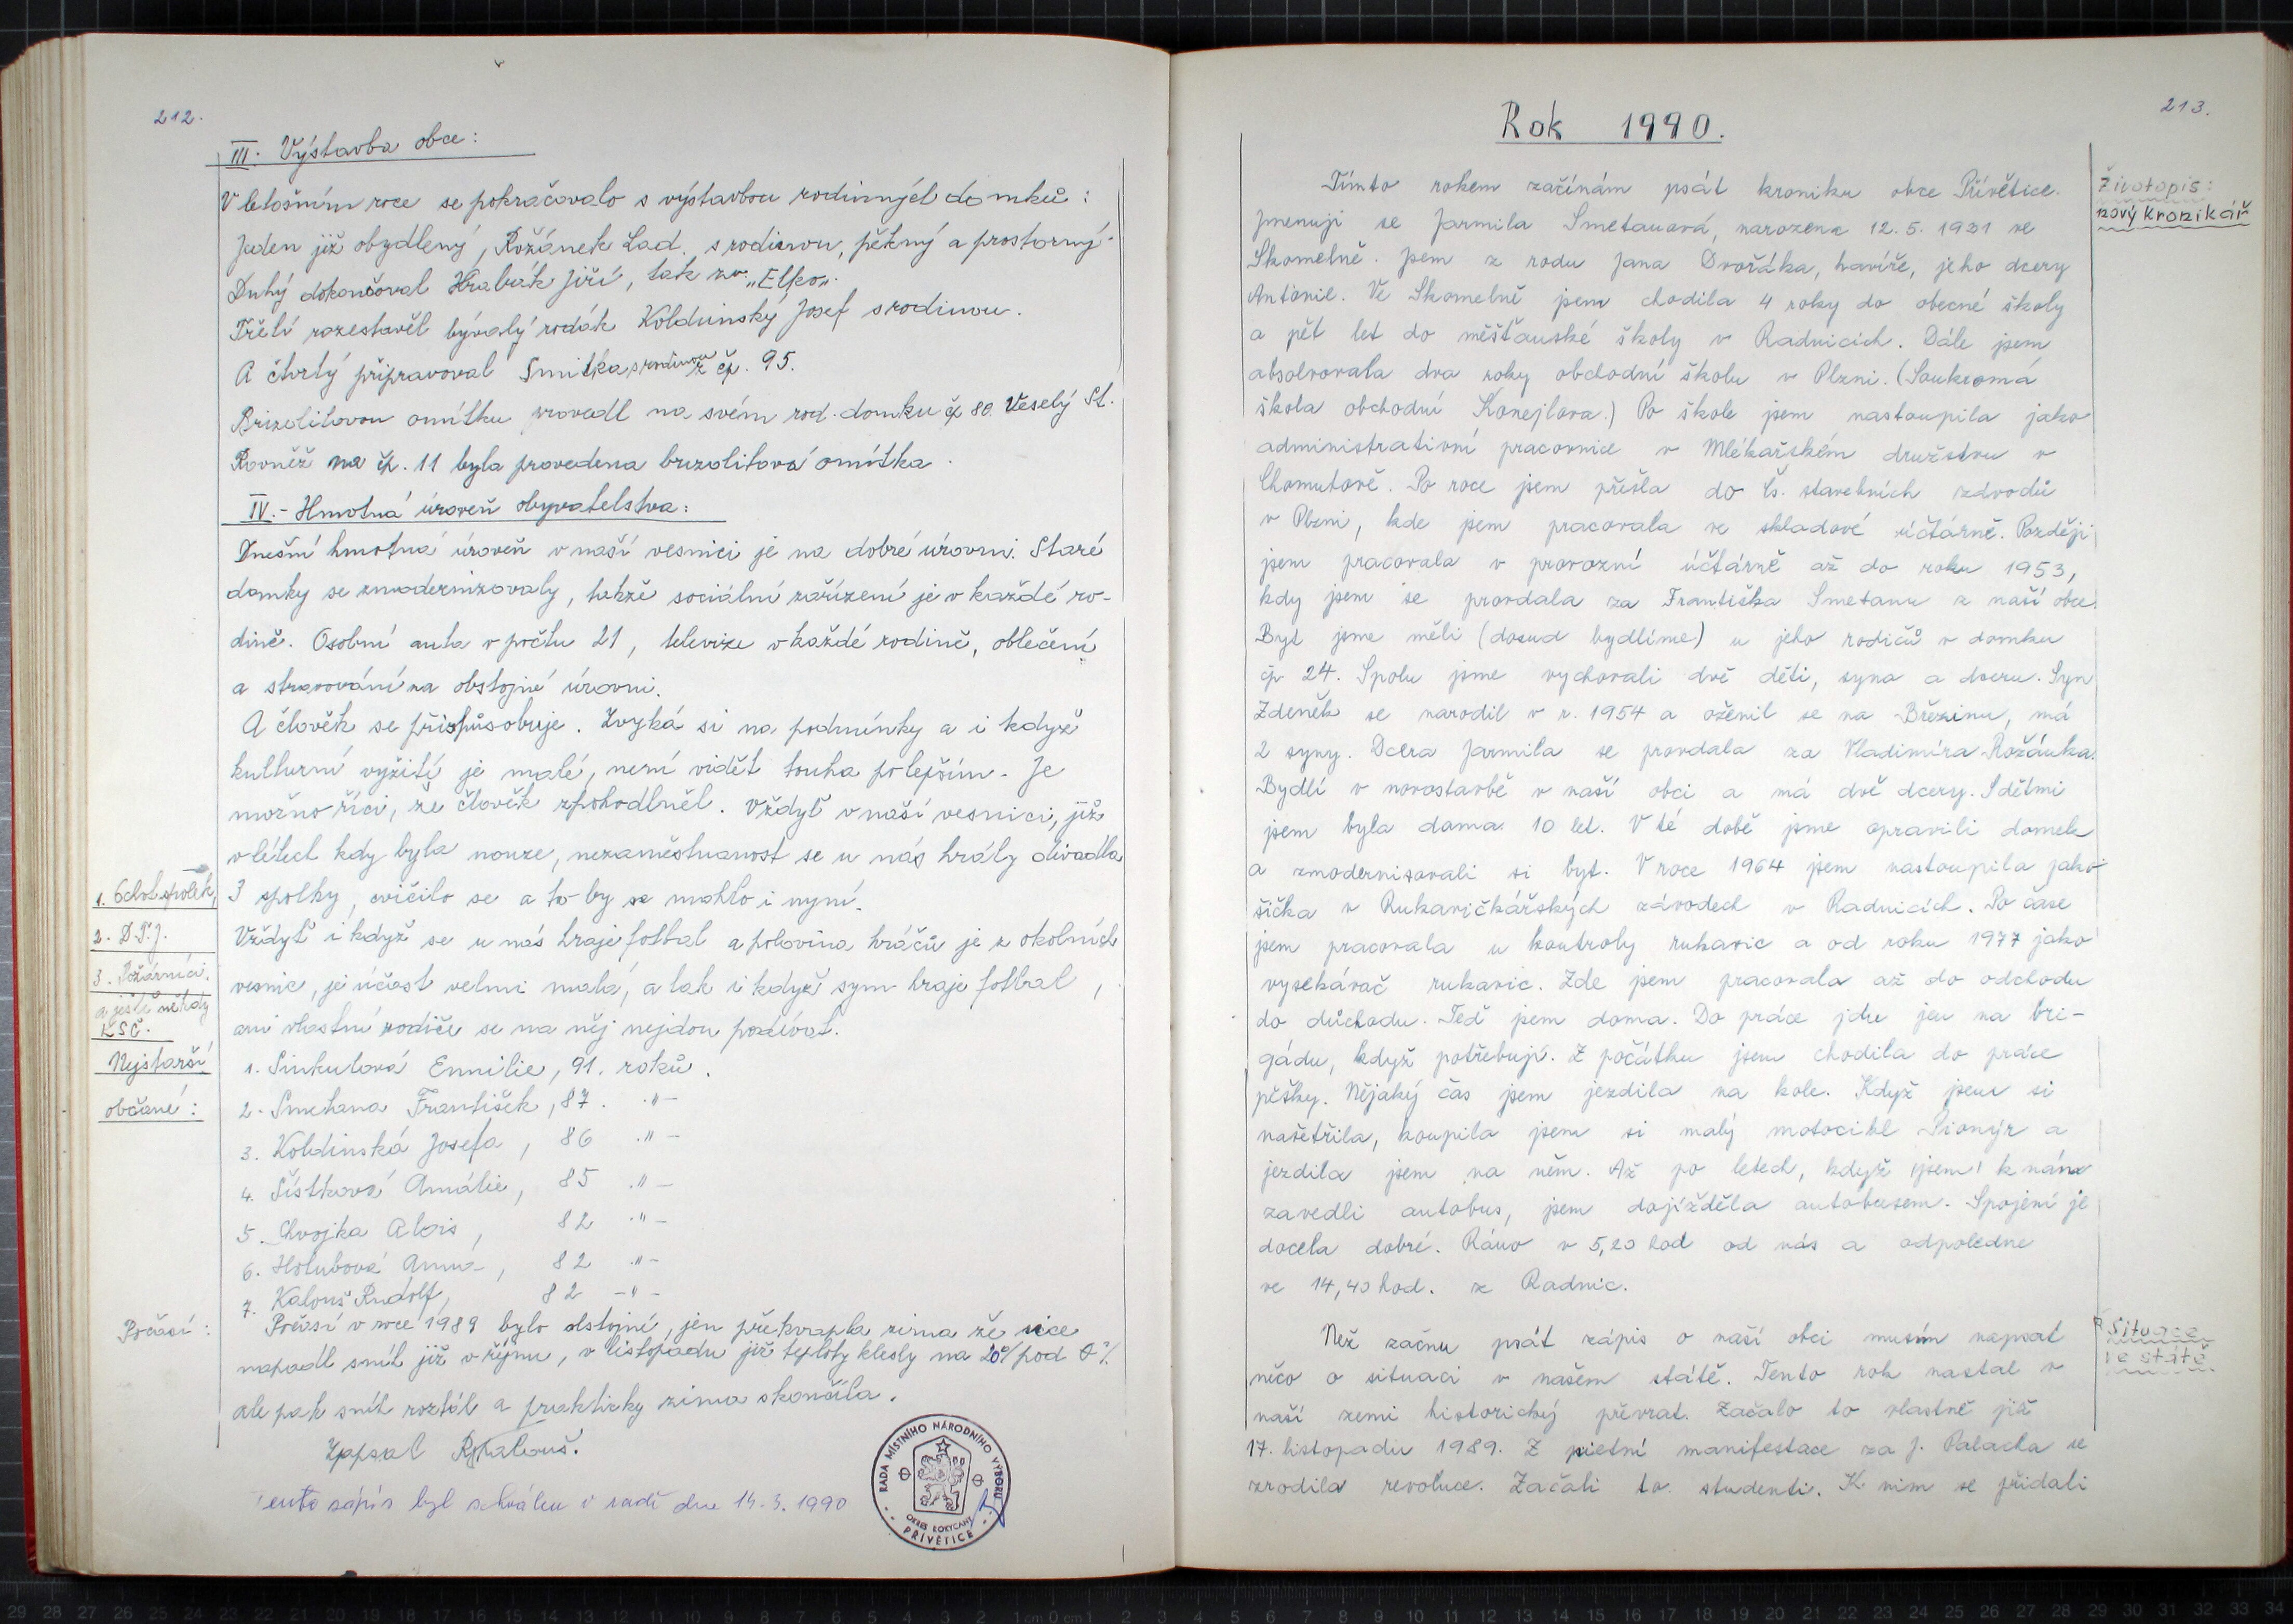 212.
III. Výstavba obce:
V letošním roce se pokračovalo s výstavbou rodinných domků:
Jeden již obydlený, Rožánek Lad. s rodinou, pěkný a prostorný.
Duhý dokončoval Hrabák Jiří, tak zv. „Elko„.
Třetí rozestavěl bývalý rodák Koldinský Josef s rodinou.
A čtvrtý připravoval Smitka s rodinou z čp. 95.
Brizolitovou omítku provedl na svém rod. domku čp 80. Veselý St.
Rovněž na čp. 11 byla provedena brizolitová omítka.
IV.- Hmotná úroveň obyvatelstva:
Dnešní hmotná úroveň v naší vesnici je na dobré úrovni. Staré
domky se zmodernizovaly, takže sociální zařízení je v každé ro-
dině. Osobní auta v počtu 21, televize v každé rodině, oblečení
a stravování na obstojné úrovni.
A člověk se přizpůsobuje. Zvyká si na podmínky a i když
kulturní vyžití je malé, není vidět touha po lepším. Je
možno říci, že člověk zpohodlněl. Vždyť v naší vesnici, již
v létech kdy byla nouze, nezaměstnanost se u nás hrály divadla
3 spolky, cvičilo se a to by se mohlo i nyní.
Vždyť i když se u nás hraje fotbal a polovina hráčů je z okolních
vesnic, je účast velmi malá, a tak i když syn hraje fotbal,
ani vlastní rodiče se na něj nejdou podívat.
1. spolek,
2. D.T.J.
3. Požárníci.
a ještě někdy
KSČ.
Nejstarší
občané:
1. Sinkulová Emilie, 91. roků.
2. Smetana František, 87. -"-
3. Koldinská Josefa, 86 -"-
4. Šístková Amálie, 85 -"-
5. Chvojka Alois, 82 -"-
6. Holubová Anna, 82 -"-
7. Kalouš Rudolf, 82 -"-
Počasí:
Počasí v roce 1989 bylo obstojné, jen překvapila zima že sice
napadl sníh již v říjnu, v listopadu již teploty klesly na 20°/pod 0°/.
ale pak sníh roztál a prakticky zima skončila.
Zapsal R. Kalouš.
Tento zápis byl schválen v radě dne 14.3.1990
RADA MÍSTNÍHO NÁRODNÍHO VÝBORU
OKRES ROKYCANY
PŘÍVĚTICE
213.
Rok 1990.
Životopis:
nový kronikář
Tímto rokem začínám psát kroniku obce Přívětice.
Jmenuji se Jarmila Smetanová, narozena 12.5.1931 ve
Skomelně. Jsem z rodu Jana Dvořáka, havíře, jeho dcery
Antonie. Ve Skomelně jsem chodila 4 roky do obecné školy
a pět let do měšťanské školy v Radnicích. Dále jsem
absolvovala dva roky obchodní školu v Plzni. (Soukromá
škola obchodní Konejlova.) Po škole jsem nastoupila jako
administrativní pracovnice v Mlékařském družstvu v
Chomutově. Po roce jsem přešla do Čs. stavebních závodů
v Plzni, kde jsem pracovala ve skladové účtárně. Později
jsem pracovala v provozní účtárně až do roku 1953,
kdy jsem se provdala za Františka Smetanu z naší obce.
Byt jsme měli (dosud bydlíme) u jeho rodičů v domku
čp 24. Spolu jsme vychovali dvě děti, syna a dceru. Syn
Zdeněk se narodil v r. 1954 a oženil se na Březinu, má
2 syny. Dcera Jarmila se provdala za Vladimíra Rožánka.
Bydlí v novostavbě v naší obci a má dvě dcery. S dětmi
jsem byla doma 10 let. V té době jsme opravili domek
a zmodernisovali si byt. V roce 1964 jsem nastoupila jako
šička v Rukavičkářských závodech v Radnicích. Po čase
jsem pracovala u kontroly rukavic a od roku 1977 jako
vysekávač rukavic. Zde jsem pracovala až do odchodu
do důchodu. Teď jsem doma. Do práce jdu jen na bri-
gádu, když potřebují. Z počátku jsem chodila do práce
pěšky. Nějaký čas jsem jezdila na kole. Když jsem si
našetřila, koupila jsem si malý motocikl Pionýr a
jezdila jsem na něm. Až po letech, když jsem k nám
zavedli autobus, jsem dojížděla autobusem. Spojení je
docela dobré. Ráno v 5,20 hod od nás a odpoledne
ve 14,40 hod. z Radnic.
Situace
ve státě
Než začnu psát zápis o naší obci musím napsat
něco o situaci v našem státě. Tento rok nastal v
naší zemi historický převrat. Začalo to vlastně již
17. listopadu 1989. Z pietní manifestace za J. Palacha se
zrodila revoluce. Začali to studenti. K nim se přidali